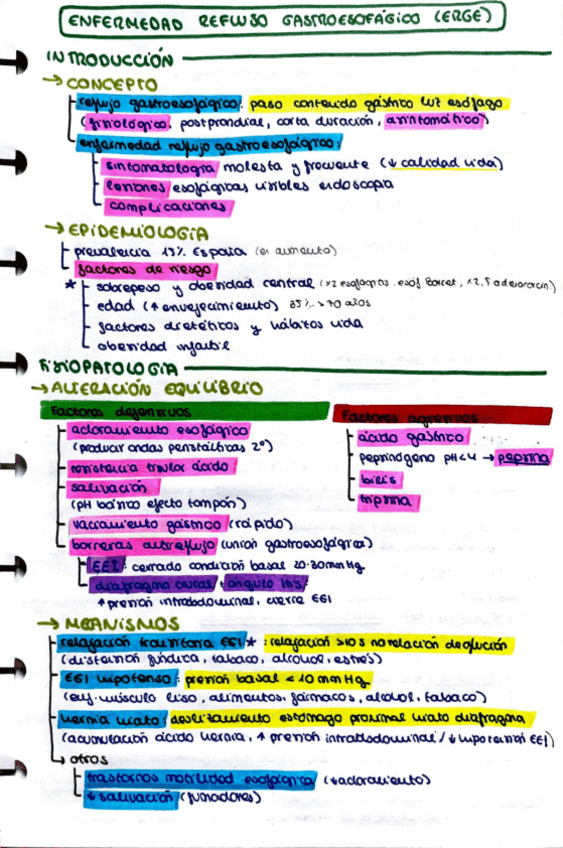 ENFERMEDAD REFLUJO GASTROESOFÁGICO (ERGE)
INTRODUCCIÓN
→ CONCEPTO
reflujo gastroesofágico: paso contenido gástrico luz esófago
(fisiológico: postprandial, corta duración, asintomático)
enfermedad reflujo gastroesofágico:
sintomatología molesta y frecuente (↓ calidad vida)
lesiones esofágicas visibles endoscopia
complicaciones
→ EPIDEMIOLOGIA
prevalencia 15% España (en aumento)
factores de riesgo
* sobrepeso y obesidad central (x2 esofagitis, esóf Barret, x2,5 adenocarcin)
edad (↑ envejecimiento) 85% >70 años
factores dietéticos y hábitos vida
obesidad infantil
FISIOPATOLOGIA
→ ALTERACIÓN EQUILIBRIO
Factores defensivos
aclaramiento esofágico
(producir ondas peristálticas 2º)
resistencia tisular ácido
salivación
(pH básico efecto tampón)
vaciamiento gástrico (rápido)
barreras antireflujo (unión gastroesofágica)
EEI: cerrado condición basal 20-30mmHg
diafragma crural + ángulo His
↑ presión intrabdominal, cierre EEI
Factores agresivos
ácido gástrico
pepsinógeno pH<4 → pepsina
bilis
tripsina
→ MECANISMOS
relajación transitoria EEI * : relajación >10s no relación deglución
(distensión fúndica, tabaco, alcohol, estrés)
EEI hipotenso: presión basal < 10 mmHg
(enf. músculo liso, alimentos, fármacos, alcohol, tabaco)
hernia hiato: deslizamiento estómago proximal hiato diafragma
(acumulación ácido hernia, ↑ presión intrabdominal / ↓ hipotensión EEI)
↳ otros
trastornos motilidad esofágica (↓ aclaramiento)
↓ salivación (fumadores)